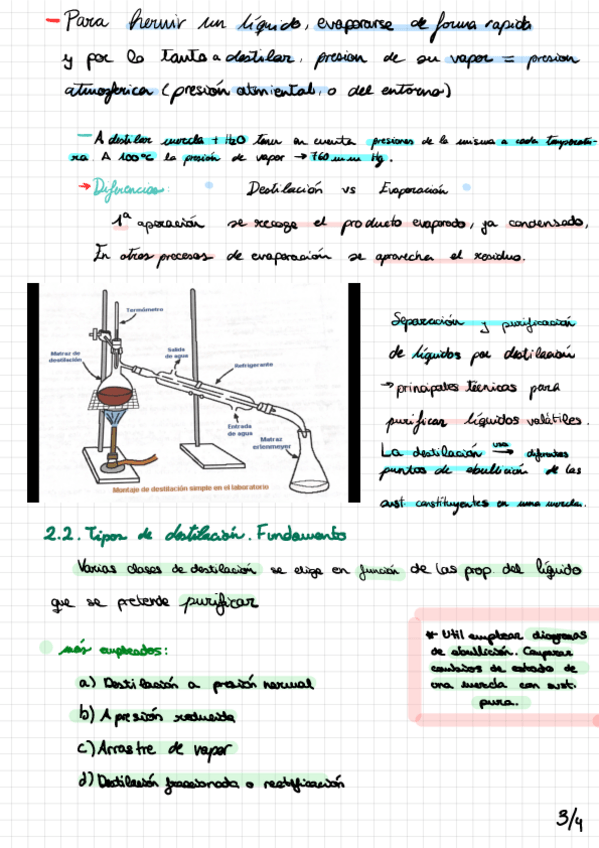 - Para hervir un líquido, evaporarse de forma rapida
y por lo tanto a destilar, presion de su vapor = presion
atmosférica (presión atmiental, o del entorno)
- A destilar mezcla + H2O tener en cuenta presiones de la misma a cada temperatu-
ra. A 100°C la presión de vapor → 760 mm Hg.
→ Diferencias: Destilación vs Evaporación
1ª operación se recoge el producto evaporado, ya condensado,
En otros procesos de evaporación se aprovecha el residuo.
Termómetro
Matraz de
destilación
Salida
de agua
Refrigerante
Entrada
de agua
Matraz
erlenmeyer
Montaje de destilación simple en el laboratorio
Separación y purificación
de líquidos por destilación
→ principales técnicas para
purificar líquidos volátiles.
La destilación usa → diferentes
puntos de ebullición de las
sust. constituyentes en una mezcla.
2.2. Tipos de destilación. Fundamento
Varias clases de destilación se elige en función de las prop. del líquido
que se pretende purificar
más empleados:
a) Destilación a presión normal
b) A presión reducida
c) Arrastre de vapor
d) Destilación fraccionada o rectificación
* Util emplear diagramas
de ebullición. Comparar
cambios de estado de
una mezcla con sust.
pura.
3/4